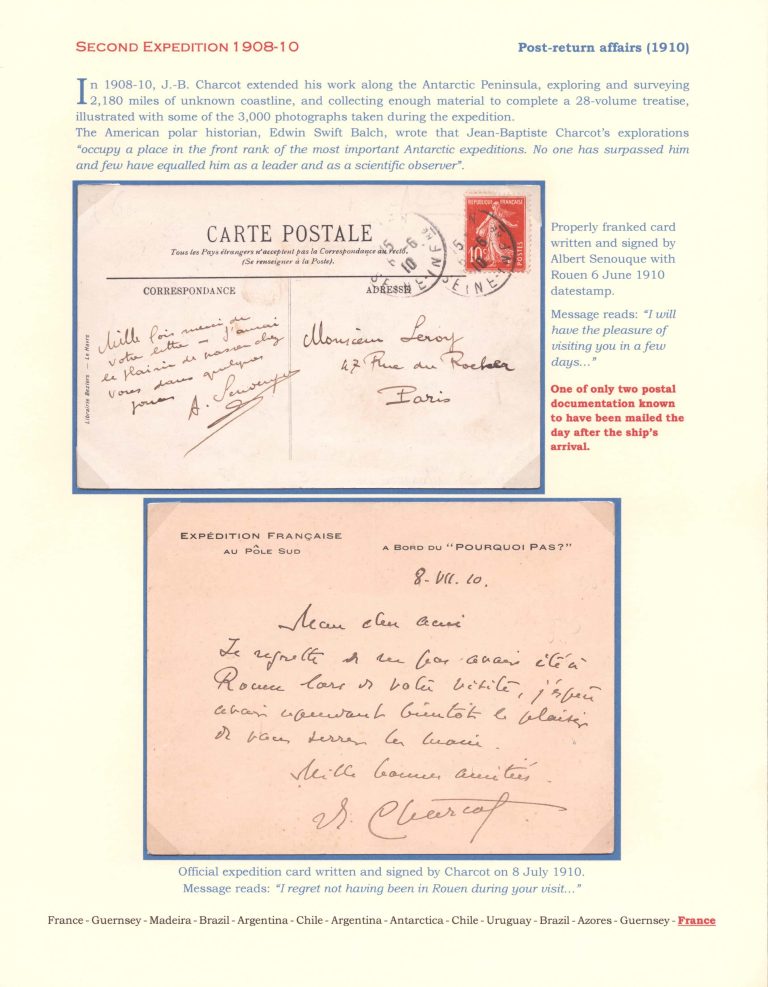 SECOND EXPEDITION 1908-10
Post-return affairs (1910)
In 1908-10, J.-B. Charcot extended his work along the Antarctic Peninsula, exploring and surveying
2,180 miles of unknown coastline, and collecting enough material to complete a 28-volume treatise,
illustrated with some of the 3,000 photographs taken during the expedition.
The American polar historian, Edwin Swift Balch, wrote that Jean-Baptiste Charcot's explorations
"occupy a place in the front rank of the most important Antarctic expeditions. No one has surpassed him
and few have equalled him as a leader and as a scientific observer".
CARTE POSTALE
Tous les Pays étrangers n'acceptent pas la Correspondance au recto.
(Se renseigner à la Poste).
CORRESPONDANCE
ADRESSE
RÉPUBLIQUE FRANÇAISE
10c
POSTES
15
6-6
10
SEINE-INFRE
15
6-6
10
SEINE-INFRE
Librairie Beziers — Le Havre
Mille fois merci de
votre lettre — J'aurai
le plaisir de passer chez
vous dans quelques
jours
A. Senouque
Monsieur Leroy
47 Rue du Rocher
Paris
Properly franked card
written and signed by
Albert Senouque with
Rouen 6 June 1910
datestamp.
Message reads: "I will
have the pleasure of
visiting you in a few
days..."
One of only two postal
documentation known
to have been mailed the
day after the ship's
arrival.
EXPÉDITION FRANÇAISE
AU PÔLE SUD
A BORD DU "POURQUOI PAS?"
8-VII.10.
Mon cher ami
Je regrette de ne pas avoir été à
Rouen lors de votre visite, j'espère
avoir cependant bientôt le plaisir
de vous serrer la main.
Mille bonnes amitiés.
Charcot
Official expedition card written and signed by Charcot on 8 July 1910.
Message reads: "I regret not having been in Rouen during your visit..."
France - Guernsey - Madeira - Brazil - Argentina - Chile - Argentina - Antarctica - Chile - Uruguay - Brazil - Azores - Guernsey - France